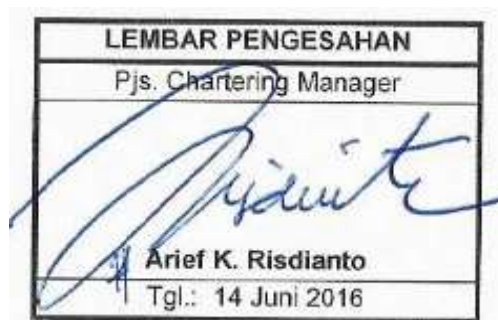 LEMBAR PENGESAHAN
Pjs. Chartering Manager
Arief K. Risdianto
Tgl.: 14 Juni 2016